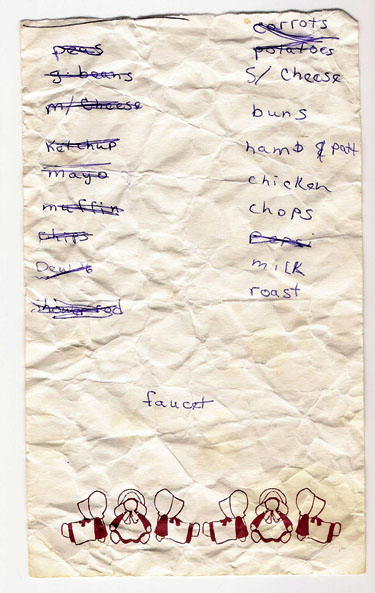 peas
g. beans
m/ Cheese
Ketchup
mayo
muffin
chips
shower rod
carrots
potatoes
S/ Cheese
buns
hamb & patt
chicken
chops
Pepsi
milk
roast
faucet